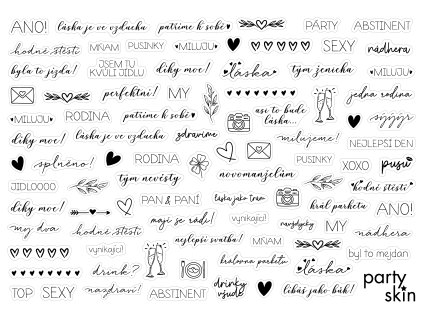 ANO! láska je ve vzduchu patříme k sobě PÁRTY ABSTINENT
hodně štěstí MŇAM PUSINKY MILUJU SEXY nádhera
byla to jízda! JSEM TU KVŮLI JÍDLU díky moc! láska tým ženicha MILUJU
perfektní! MY jedna rodina
MILUJU RODINA patříme k sobě asi to bude láska...
díky moc! láska je ve vzduchu zdravíme milujeme! NEJLEPŠÍ DEN
splněno! RODINA PUSINKY XOXO pusu
JIDLOOOO tým nevěsty novomanželům hodně štěstí
díky moc! PAN & PANÍ láska jako trám král parketu ANO!
my dva hodně štěstí mají se rádi! vynikající! navždycky MY nádhera
vynikající! nejlepší svatba! MŇAM byl to mejdan
drink? královna parketu láska party skin
TOP SEXY nazdraví! ABSTINENT drinky všude líbáš jako bůh!